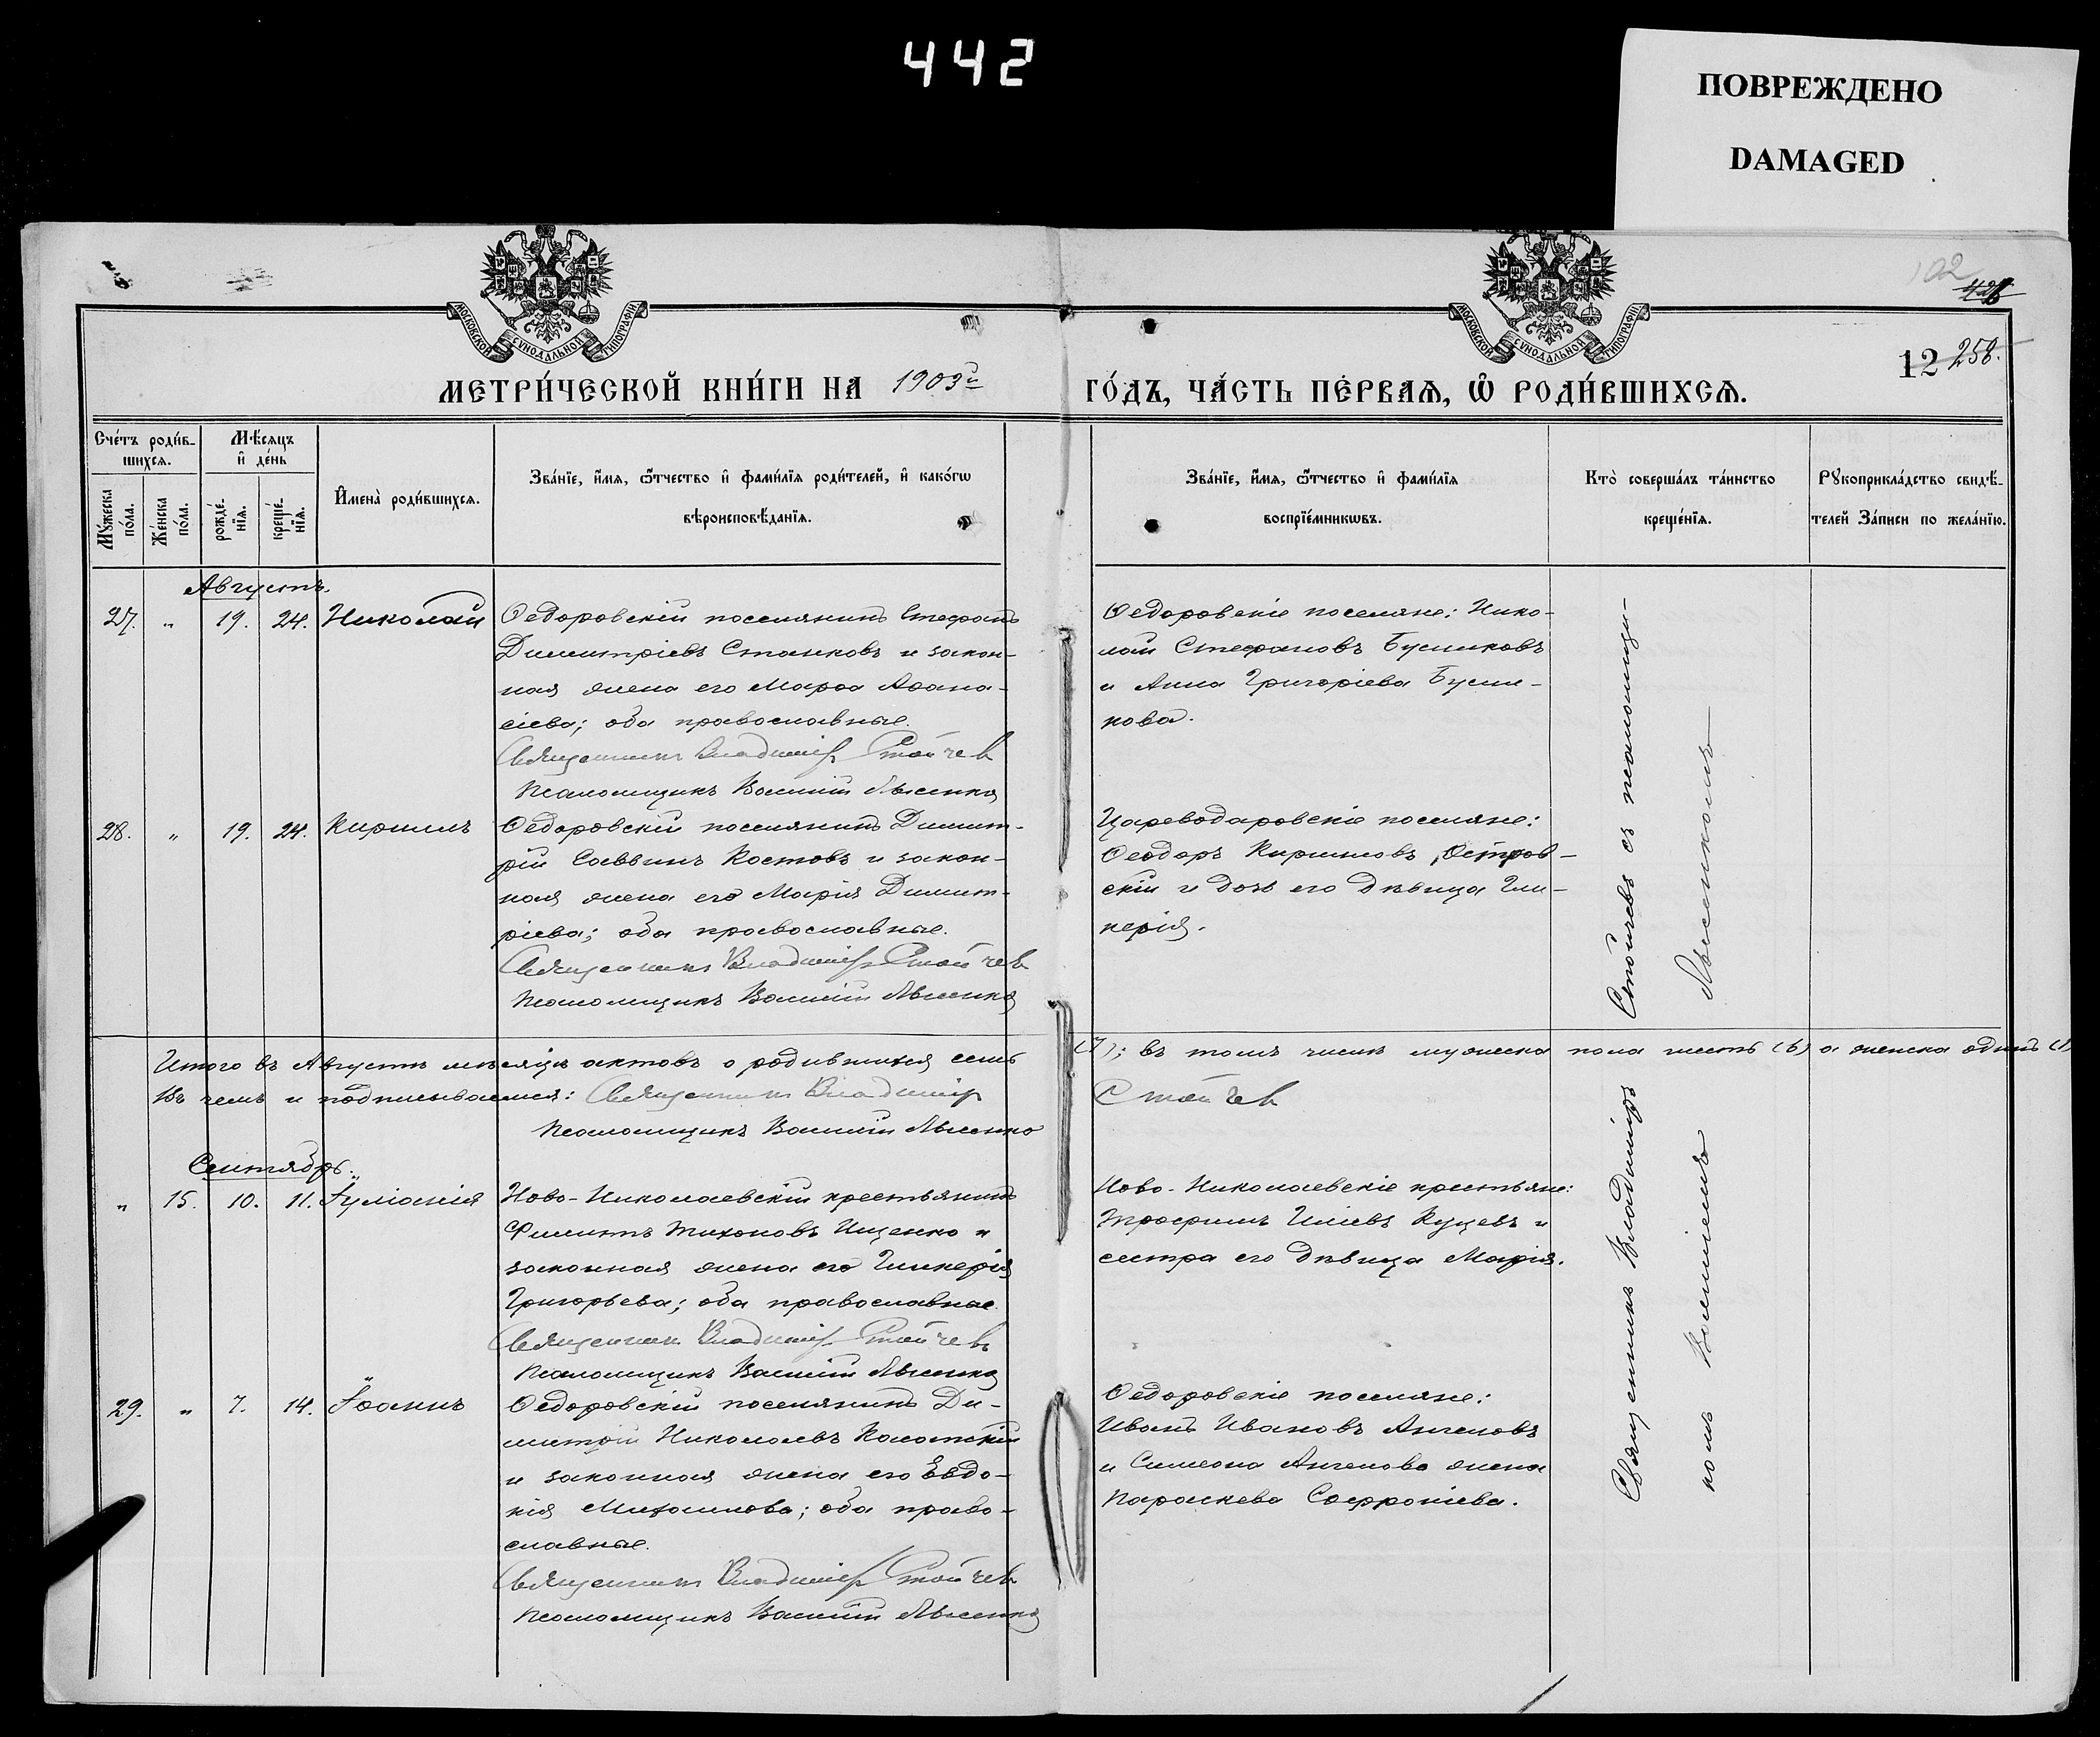 442
ПОВРЕЖДЕНО
DAMAGED
МОСКОВСКОЙ СѴНОДАЛЬНОЙ ТИПОГРАФІИ.
МОСКОВСКОЙ СѴНОДАЛЬНОЙ ТИПОГРАФІИ.
102
12 258.
МЕТРИ́ЧЕСКОЙ КНИ́ГИ НА 1903й
ГО́ДЪ, ЧА́СТЬ ПЕ́РВАѦ, Ѡ҆ РОДИ́ВШИХСѦ.
Сче́тъ роди́в-
шихсѧ.
Мꙋ́жеска по́ла.
Же́нска по́ла.
Мѣ́сѧцъ и҆ де́нь
рожде́-нїѧ.
креще́-нїѧ.
И҆мена̀ роди́вшихсѧ.
Зва́нїе, и҆́мѧ, ѻ҆́тчество и҆ фами́лїѧ роди́телей, и҆ како́гѡ
вѣроисповѣ́данїѧ.
Зва́нїе, и҆́мѧ, ѻ҆́тчество и҆ фами́лїѧ
воспрїе́мникѡвъ.
Кто̀ соверша́лъ та́инство
креще́нїѧ.
Рꙋкоприкла́дство свидѣ́-
телей За́писи по жела́нїю.
Августъ.
27. " 19. 24. Николай
Ѳедоровскій поселянинъ Стефанъ
Димитріевъ Станковъ и закон-
ная жена его Марѳа Аѳана-
сіева; оба православные.
Священникъ Владимір Стойчев
Псаломщикъ Василій Лысенко
Ѳедоровскіе поселяне: Нико-
лай Стефановъ Бусниковъ
и Анна Григоріева Бусни-
кова.
28. " 19. 24. Кириллъ
Ѳедоровскій поселянинъ Димит-
рій Саввинъ Костовъ и закон-
ная жена его Марія Димит-
ріева; оба православные.
Священникъ Владимір Стойчев
Псаломщикъ Василій Лысенко
Цареводаровскіе поселяне:
Ѳеодоръ Кирилловъ Островс-
скій и дочь его дѣвица Гли-
керія.
Итого въ Августѣ мѣсяцѣ актовъ о родившихся семь (7); въ томъ числѣ мужеска пола шесть (6) а женска одинъ (1)
Въ чемъ и подписываемся: Священникъ Владимір Стойчев
Псаломщикъ Василій Лысенко
Сентябрь.
" 15. 10. 11. Іуліанія
Ново-Николаевскій крестьянинъ
Филиппъ Тихоновъ Ищенко и
законная жена его Гликерія
Григорьева; оба православные.
Священник Владимір Стойчевъ
Псаломщикъ Василій Лысенко
Ново-Николаевскіе крестьяне:
Трофимъ Иліевъ Куцевъ и
сестра его дѣвица Марія.
29. " 7. 14. Іоаннъ
Ѳедоровскій поселянинъ Ди-
митрій Николаевъ
и законная жена его Евдо-
кія Михаилова; оба право-
славные.
Священникъ Владимір Стойчев
Псаломщикъ Василій Лысенко
Ѳедоровскіе поселяне:
Иванъ Ивановъ Ангеловъ
и Симеона Ангелова жена
Параскева Софроніева.
Священникъ Владиміръ Стойчевъ съ псаломщи-
комъ Василіемъ Лысенкомъ